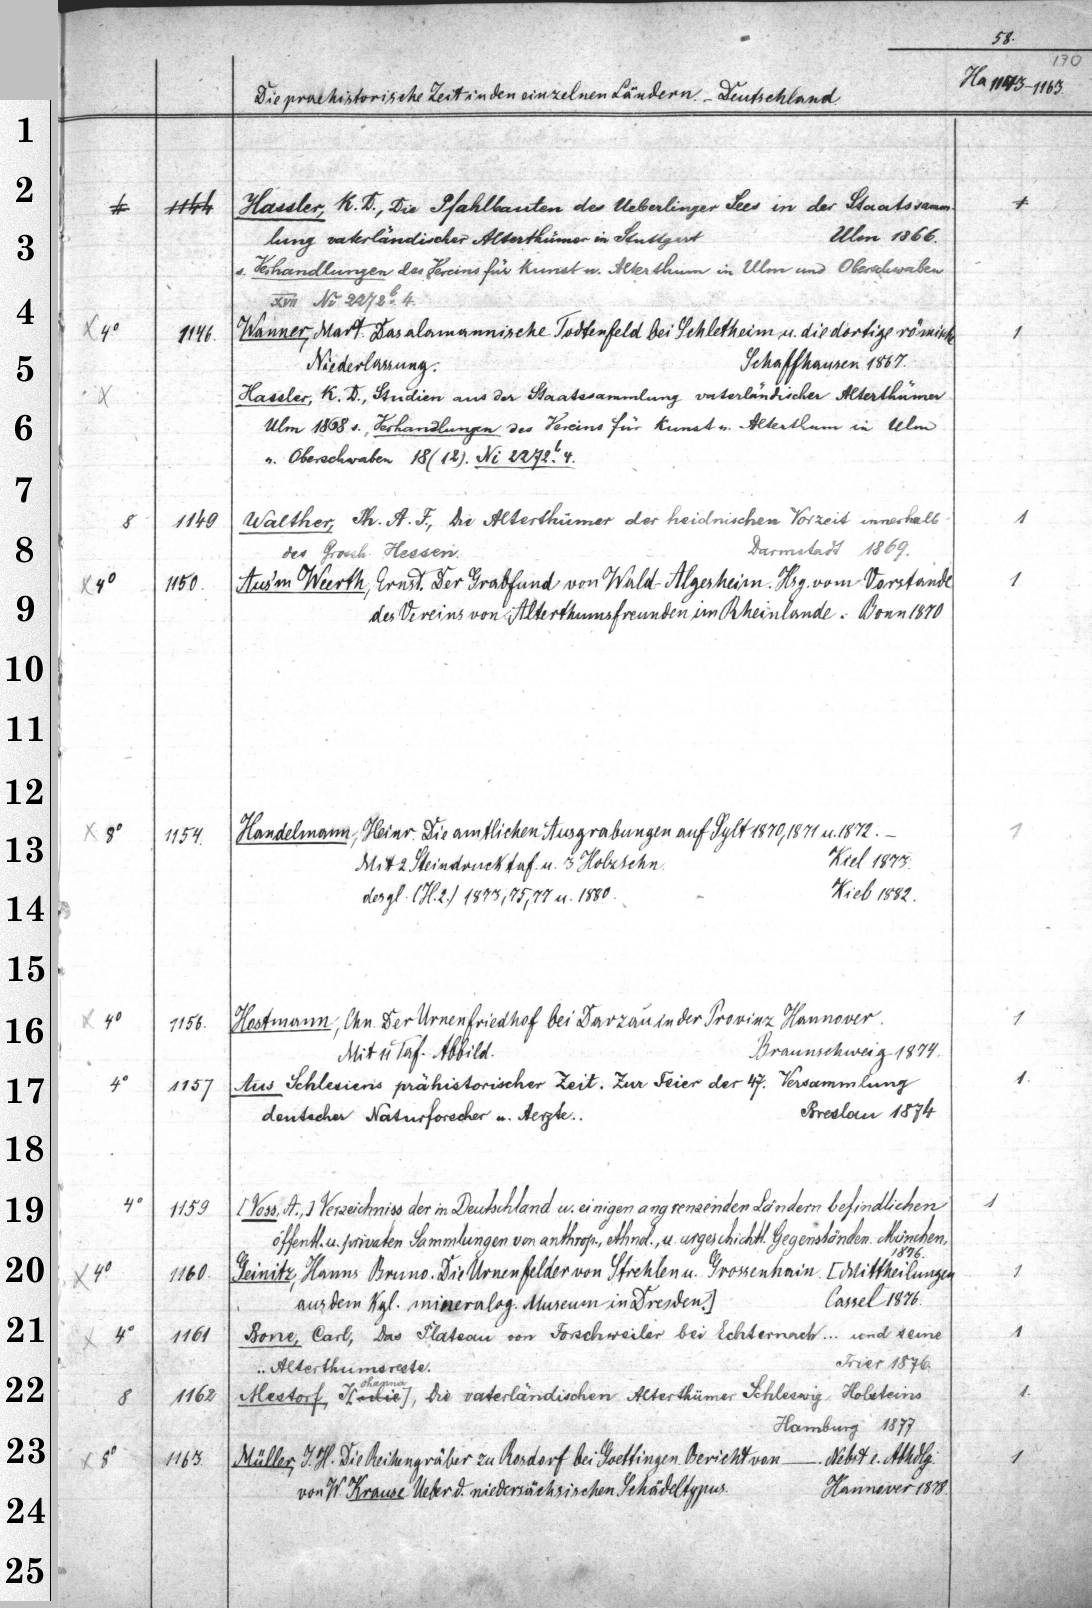 58.
170
Die praehistorische Zeit in den einzelnen Ländern. – Deutschland.
Ha 1143-1163.
1
2
3
4
5
6
7
8
9
10
11
12
13
14
15
16
17
18
19
20
21
22
23
24
25
4 1144 Hassler, K. D., Die Pfahlbauten des Ueberlinger Sees in der Staatssamm- 1
lung vaterländischer Alterthümer in Stuttgart Ulm 1866.
s. Verhandlungen des Vereins für Kunst u. Alterthum in Ulm und Oberschwaben
XVII Ni 2272 b. 4.
X 4° 1146. Wanner, Mart. Das alamannische Todtenfeld bei Schletheim u. die dortige römische 1
Niederlassung. Schaffhausen 1867.
X Hassler, K. D., Studien aus der Staatssammlung vaterländischer Alterthümer
Ulm 1868 s. Verhandlungen des Vereins für Kunst u. Alterthum in Ulm
u. Oberschwaben 18 (12). Ni 2272 b. 4.
8 1149 Walther, Ph. A. F., Die Alterthümer der heidnischen Vorzeit innerhalb 1
des Grossh. Hessen. Darmstadt 1869.
X 4° 1150. Aus'm Weerth, Ernst. Der Grabfund von Wald-Algesheim. Hsg. vom Vorstande 1
des Vereins von Alterthumsfreunden im Rheinlande. Bonn 1870
X 8° 1154. Handelmann, Heinr. Die amtlichen Ausgrabungen auf Sylt 1870, 1871 u. 1872. – 1
Mit 2 Steindrucktaf. u. 3 Holzschn. Kiel 1873.
desgl. (H. 2.) 1873, 75, 77 u. 1880. Kiel 1882.
X 4° 1156. Hostmann, Chn. Der Urnenfriedhof bei Darzau in der Provinz Hannover. 1
Mit 11 Taf. Abbild. Braunschweig 1874.
4° 1157 Aus Schlesiens prähistorischer Zeit. Zur Feier der 47. Versammlung 1.
deutscher Naturforscher u. Aerzte.. Breslau 1874
4° 1159 [Voss, A.,] Verzeichniss der in Deutschland u. einigen angrenzenden Ländern befindlichen 1
öffentl. u. privaten Sammlungen von anthrop., ethnol., u. urgeschichtl. Gegenständen. München,
1876.
X 4° 1160. Geinitz, Hanns Bruno. Die Urnenfelder von Strehlen u. Grossenhain. [Mittheilungen 1
aus dem Kgl. mineralog. Museum in Dresden.] Cassel 1876.
X 4° 1161 Bone, Carl, Das Plateau von Forschweiler bei Echternach ... und seine 1
.. Alterthumsreste. Trier 1876.
ohanna
8 1162 Mestorf, J[], Die vaterländischen Alterthümer Schleswig Holsteins 1.
Hamburg 1877
X 8° 1163. Müller, J. H. Die Reihengräber zu Rosdorf bei Goettingen Bericht von —. Nebst e. Abhdlg. 1
von W. Krause Ueber d. niedersächsischen Schädeltypus. Hannover 1878.